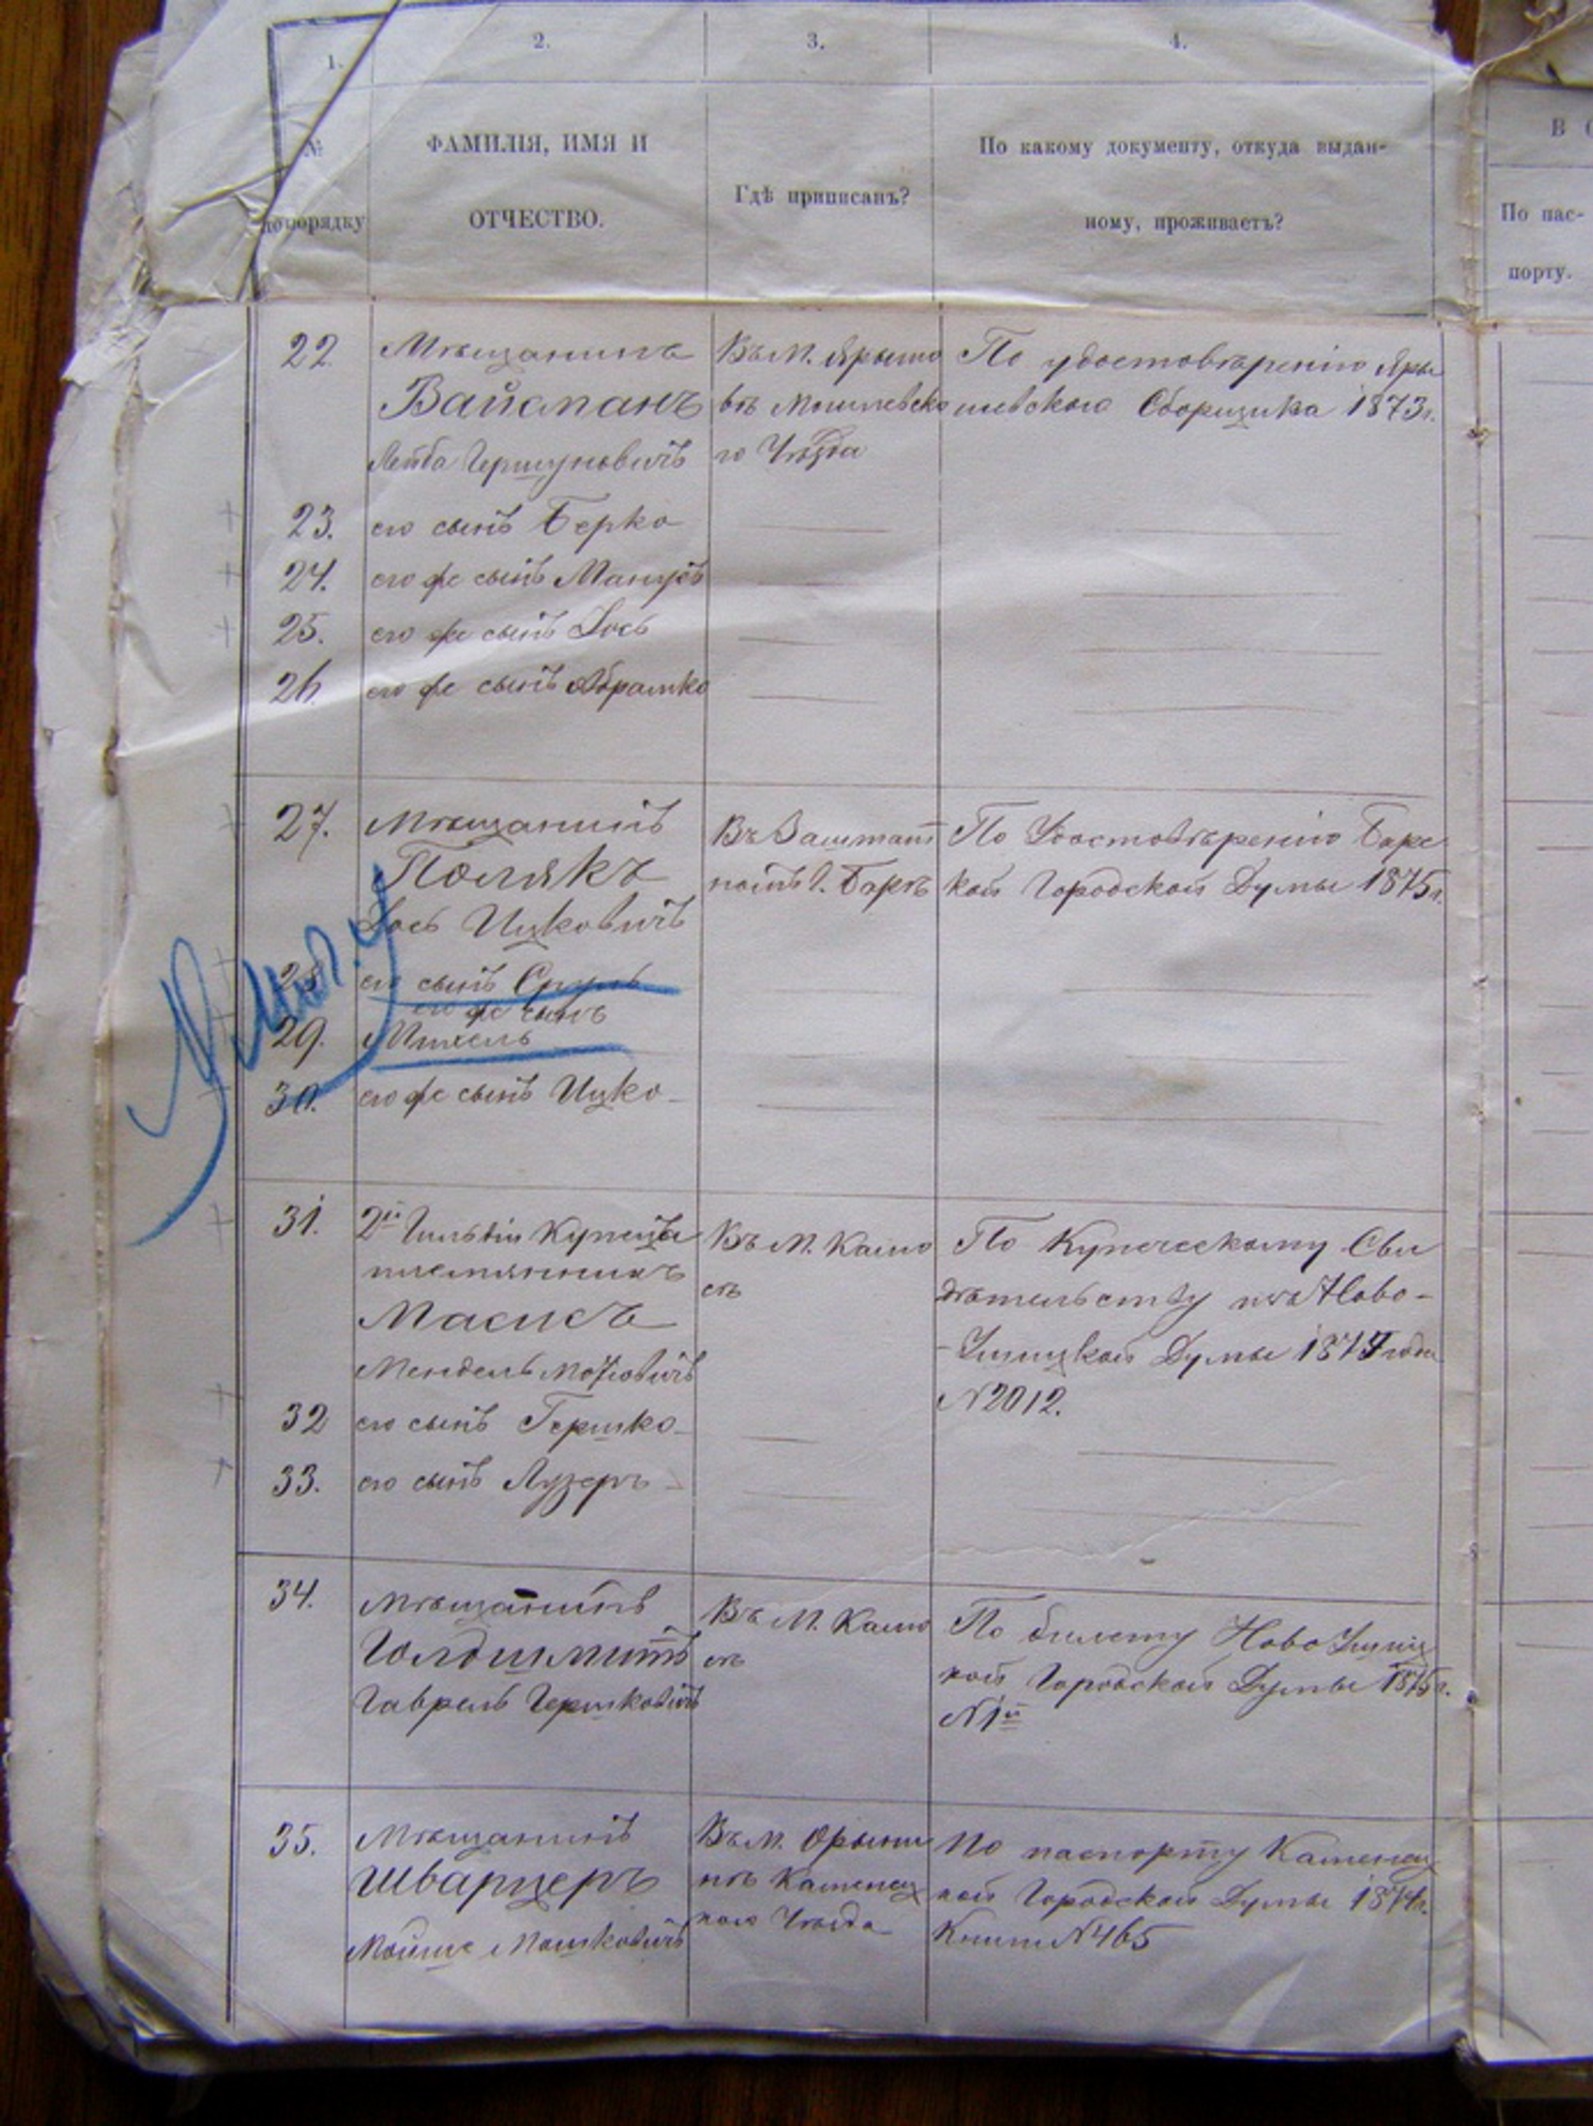 1.
2.
3.
4.
№
по порядку
ФАМИЛІЯ, ИМЯ И
ОТЧЕСТВО.
Гдѣ приписанъ?
По какому документу, откуда выдан-
ному, проживаетъ?
В
По пас-
порту.
22
Мѣщанинъ
Вайсманъ
Лейба Гершуновичъ
Въ М. Ярыше
вѣ Могилевска
го Уѣзда
По удостовѣренію Яры
шевскаго Сборщика 1873г.
23. его сынъ Берко
24. его же сынъ Манусъ
25. его же сынъ Іось
26. его же сынъ Абрамко
27.
Мѣщанинъ
Полякъ
Іось Ицковичъ
Въ Заштат
номъ г. Барѣ
По Удостовѣренію Барс
кой Городской Думы 1875г.
28. его сынъ Сруль
его же сынъ
29. Михель
30. его же сынъ Ицко
31.
2й Гильдіи Купеца
племянникъ
Масисъ
Мендель Мошковичъ
Въ М. Калю
сѣ
По Купеческому Сви
дѣтельству изъ Ново-
-Ушицкой Думы 187 года
N 2012.
32 его сынъ Гершко
33. его сынъ Лузеръ
34.
Мѣщанинъ
Голдшмитъ
Гаврель Гершковичъ
Въ М. Калю
сѣ
По билету НовоУшиц
кой Городской Думы 1875г.
N 1й
35.
Мѣщанинъ
Шварцеръ
Мойше Мошковичъ
Въ М. Орыни
нѣ Каменец
каго Уѣзда
По паспорту Каменец
кой Городской Думы 1874г.
Книги N 465